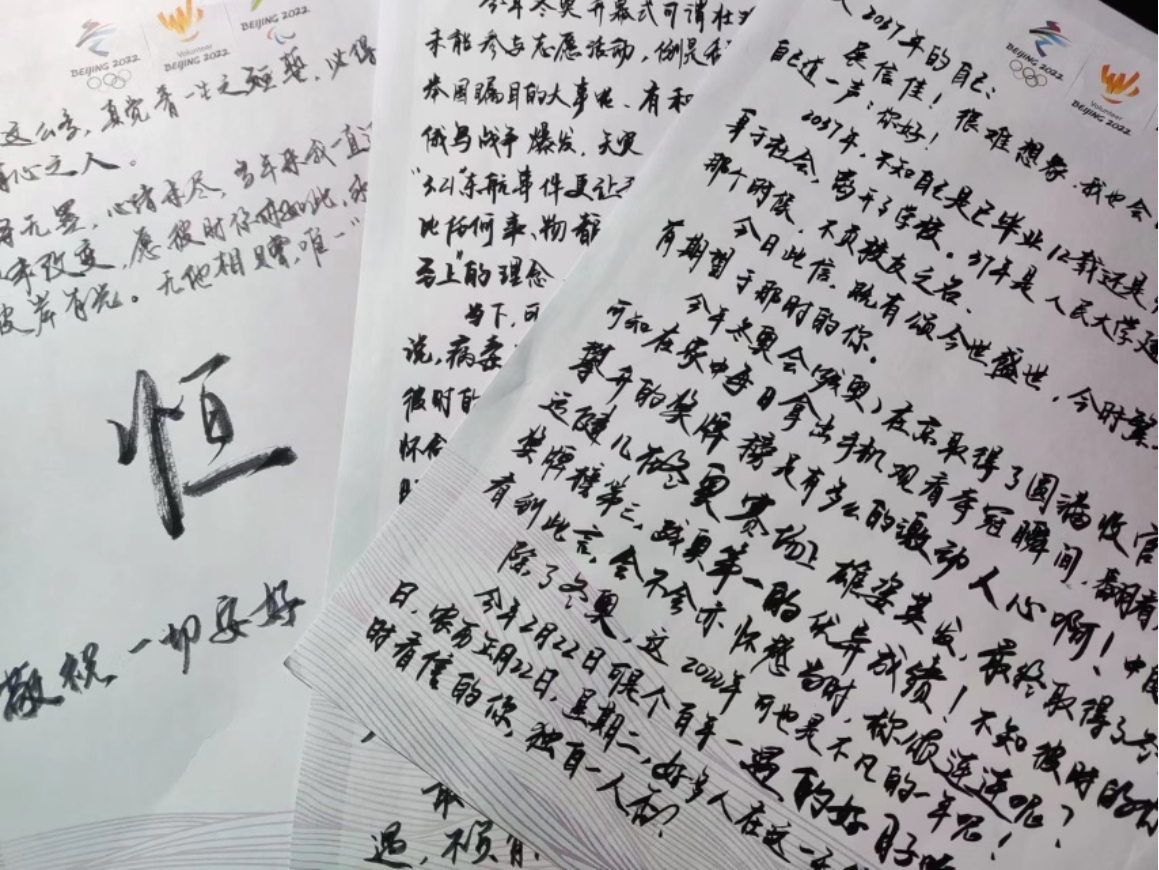 BEIJING 2022
Volunteer
BEIJING 2022
BEIJING 2022
这么多,真觉着一生之短暂,必得
心之人。
无置,心绪未尽,当年来我一直
未改变,愿彼时你仍如此,
彼岸有光。无他相赠,唯一"
恒
敬祝 一切安好
今年冬奥开幕式可谓
未能参与志愿活动,倒是
举国瞩目的大事呢、有和
俄乌战争爆发,天
"3.21"东航事件更让
比任何事、物都
至上"的理念
当下,
说,病毒
彼时的
怀念
遇,不负
BEIJING 2022
Volunteer
BEIJING 2022
2037年的自己:
展信佳!很难想象,我也会
自己道一声:你好!
2037年,不知自己是已毕业12载还是
身于社会,离开了学校。37年是人民大学建
那个时候,不负校友之名。
今日此信,既有颂今世盛世,今时繁
有期望于那时的你。
今年冬奥会(残奥)在京取得了圆满收官
可知在家中每日拿出手机观看夺冠瞬间,翻看
攀升的奖牌榜是有多么的激动人心啊!中国
运健儿在冬奥赛场上雄姿英发,最终取得了冬
奖牌榜第三,残奥第一的优异成绩!不知彼时的你
看到此言,会不会亦怀想当时,梳涙连连呢?
除了冬奥,这2022年可也是不凡的一年呢!
今年2月22日可是个百年一遇的好日子呢
日,农历正月22日,星期二,好多人在这一天
时看信的你,独自一人否?